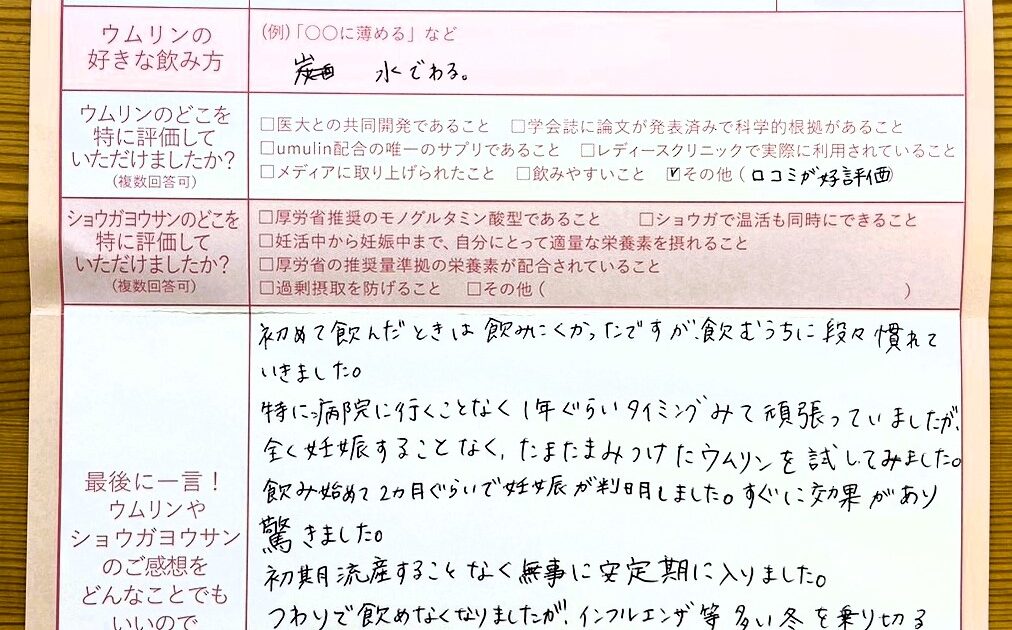 ウムリンの
好きな飲み方
(例)「○○に薄める」など
水でわる。
ウムリンのどこを
特に評価して
いただけましたか?
(複数回答可)
□医大との共同開発であること □学会誌に論文が発表済みで科学的根拠があること
□umulin配合の唯一のサプリであること □レディースクリニックで実際に利用されていること
□メディアに取り上げられたこと □飲みやすいこと ☑その他(口コミが好評価)
ショウガヨウサンのどこを
特に評価して
いただけましたか?
(複数回答可)
□厚労省推奨のモノグルタミン酸型であること □ショウガで温活も同時にできること
□妊活中から妊娠中まで、自分にとって適量な栄養素を摂れること
□厚労省の推奨量準拠の栄養素が配合されていること
□過剰摂取を防げること □その他( )
最後に一言!
ウムリンや
ショウガヨウサン
のご感想を
どんなことでも
いいので
初めて飲んだときは飲みにくかったですが、飲むうちに段々慣れて
いきました。
特に病院に行くことなく1年ぐらいタイミングみて頑張っていましたが、
全く妊娠することなく、たまたまみつけたウムリンを試してみました。
飲み始めて2ヵ月ぐらいで妊娠が判明しました。すぐに効果があり
驚きました。
初期流産することなく無事に安定期に入りました。
つわりで飲めなくなりましたが、インフルエンザ等多い冬を乗り切る